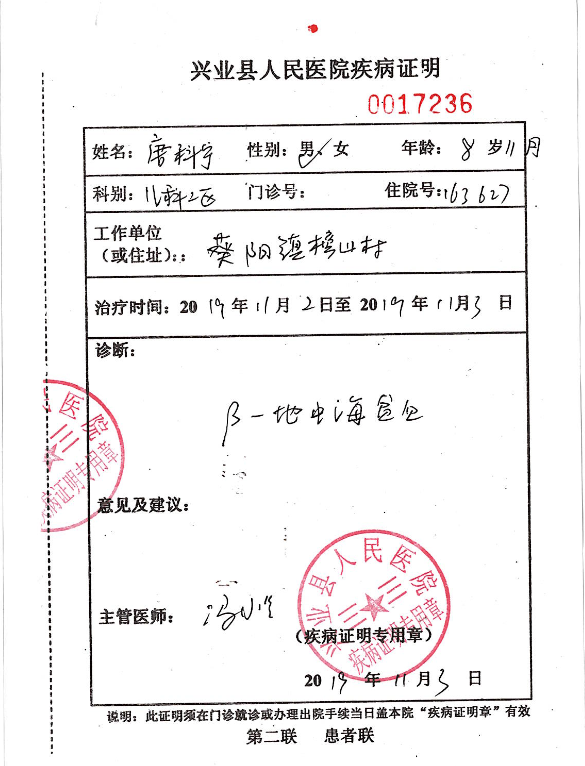 兴业县人民医院疾病证明
0017236
姓名：唐科宇 性别：男√女 年龄：8岁11月
科别：儿科二区 门诊号： 住院号：163627
工作单位
（或住址）：： 葵阳镇榜山村
治疗时间：2019年11月2日至2019年11月3日
诊断：
β-地中海贫血
意见及建议：
主管医师：
（疾病证明专用章）
2019年11月3日
说明：此证明须在门诊就诊或办理出院手续当日盖本院“疾病证明章”有效
第二联 患者联
医院
三三
疾病证明专用章
兴业县人民医院
三三
疾病证明专用章